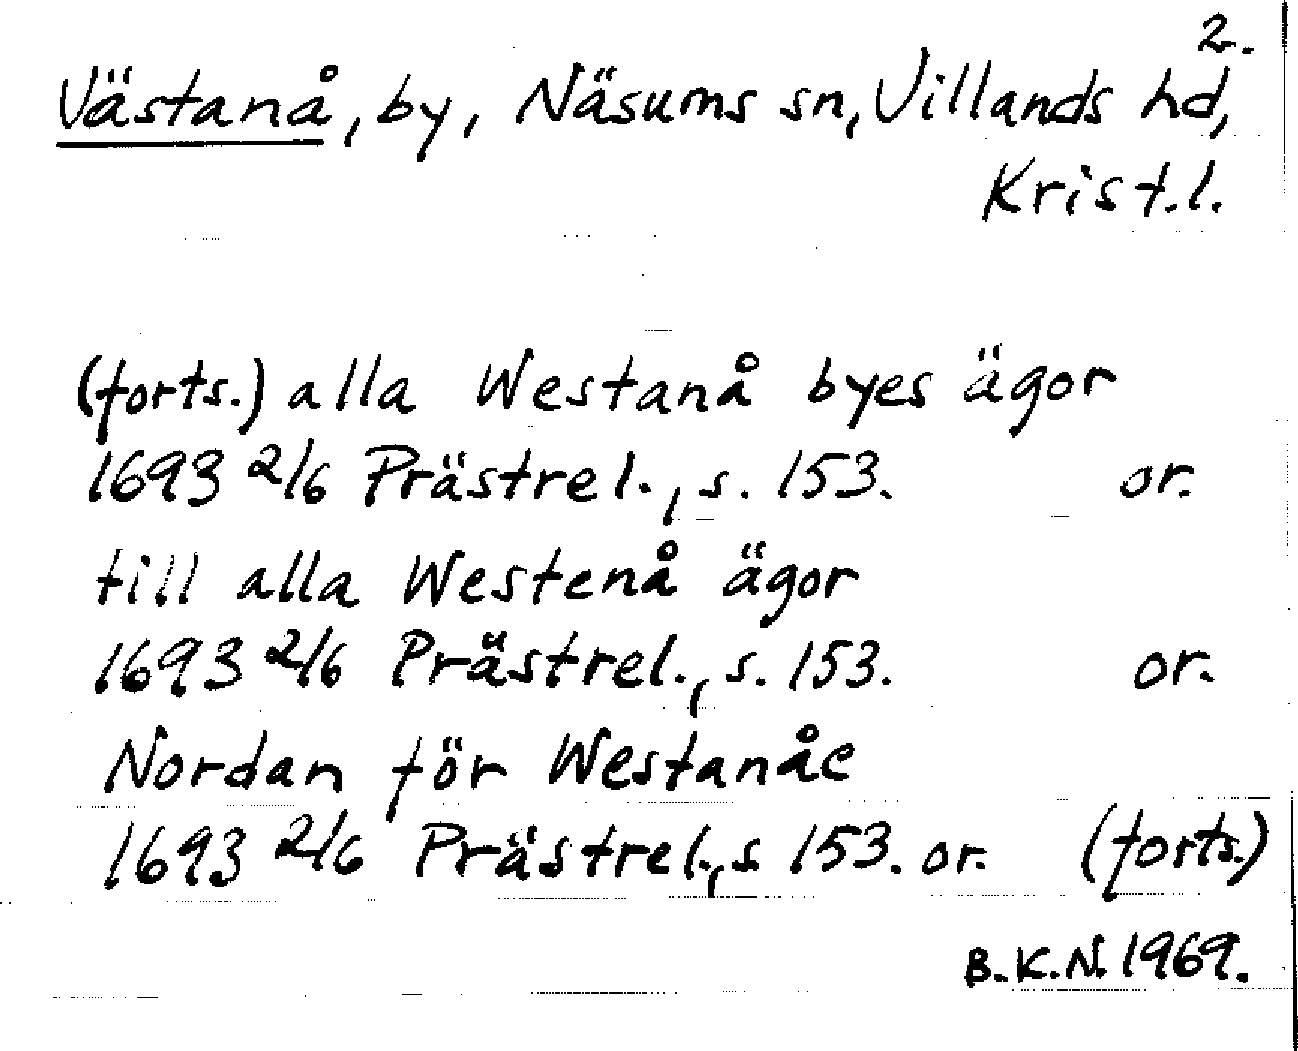 2.
Västanå, by, Näsums sn, Villands hd,
Krist.l.
(forts.) alla Westanå byes ägor
1693 2/6 Prästrel., s. 153. or.
till alla Westenå ägor
1693 2/6 Prästrel., s. 153. or.
Nordan för Westanåe
1693 2/6 Prästrel., s 153. or. (forts.)
B.K.N. 1969.